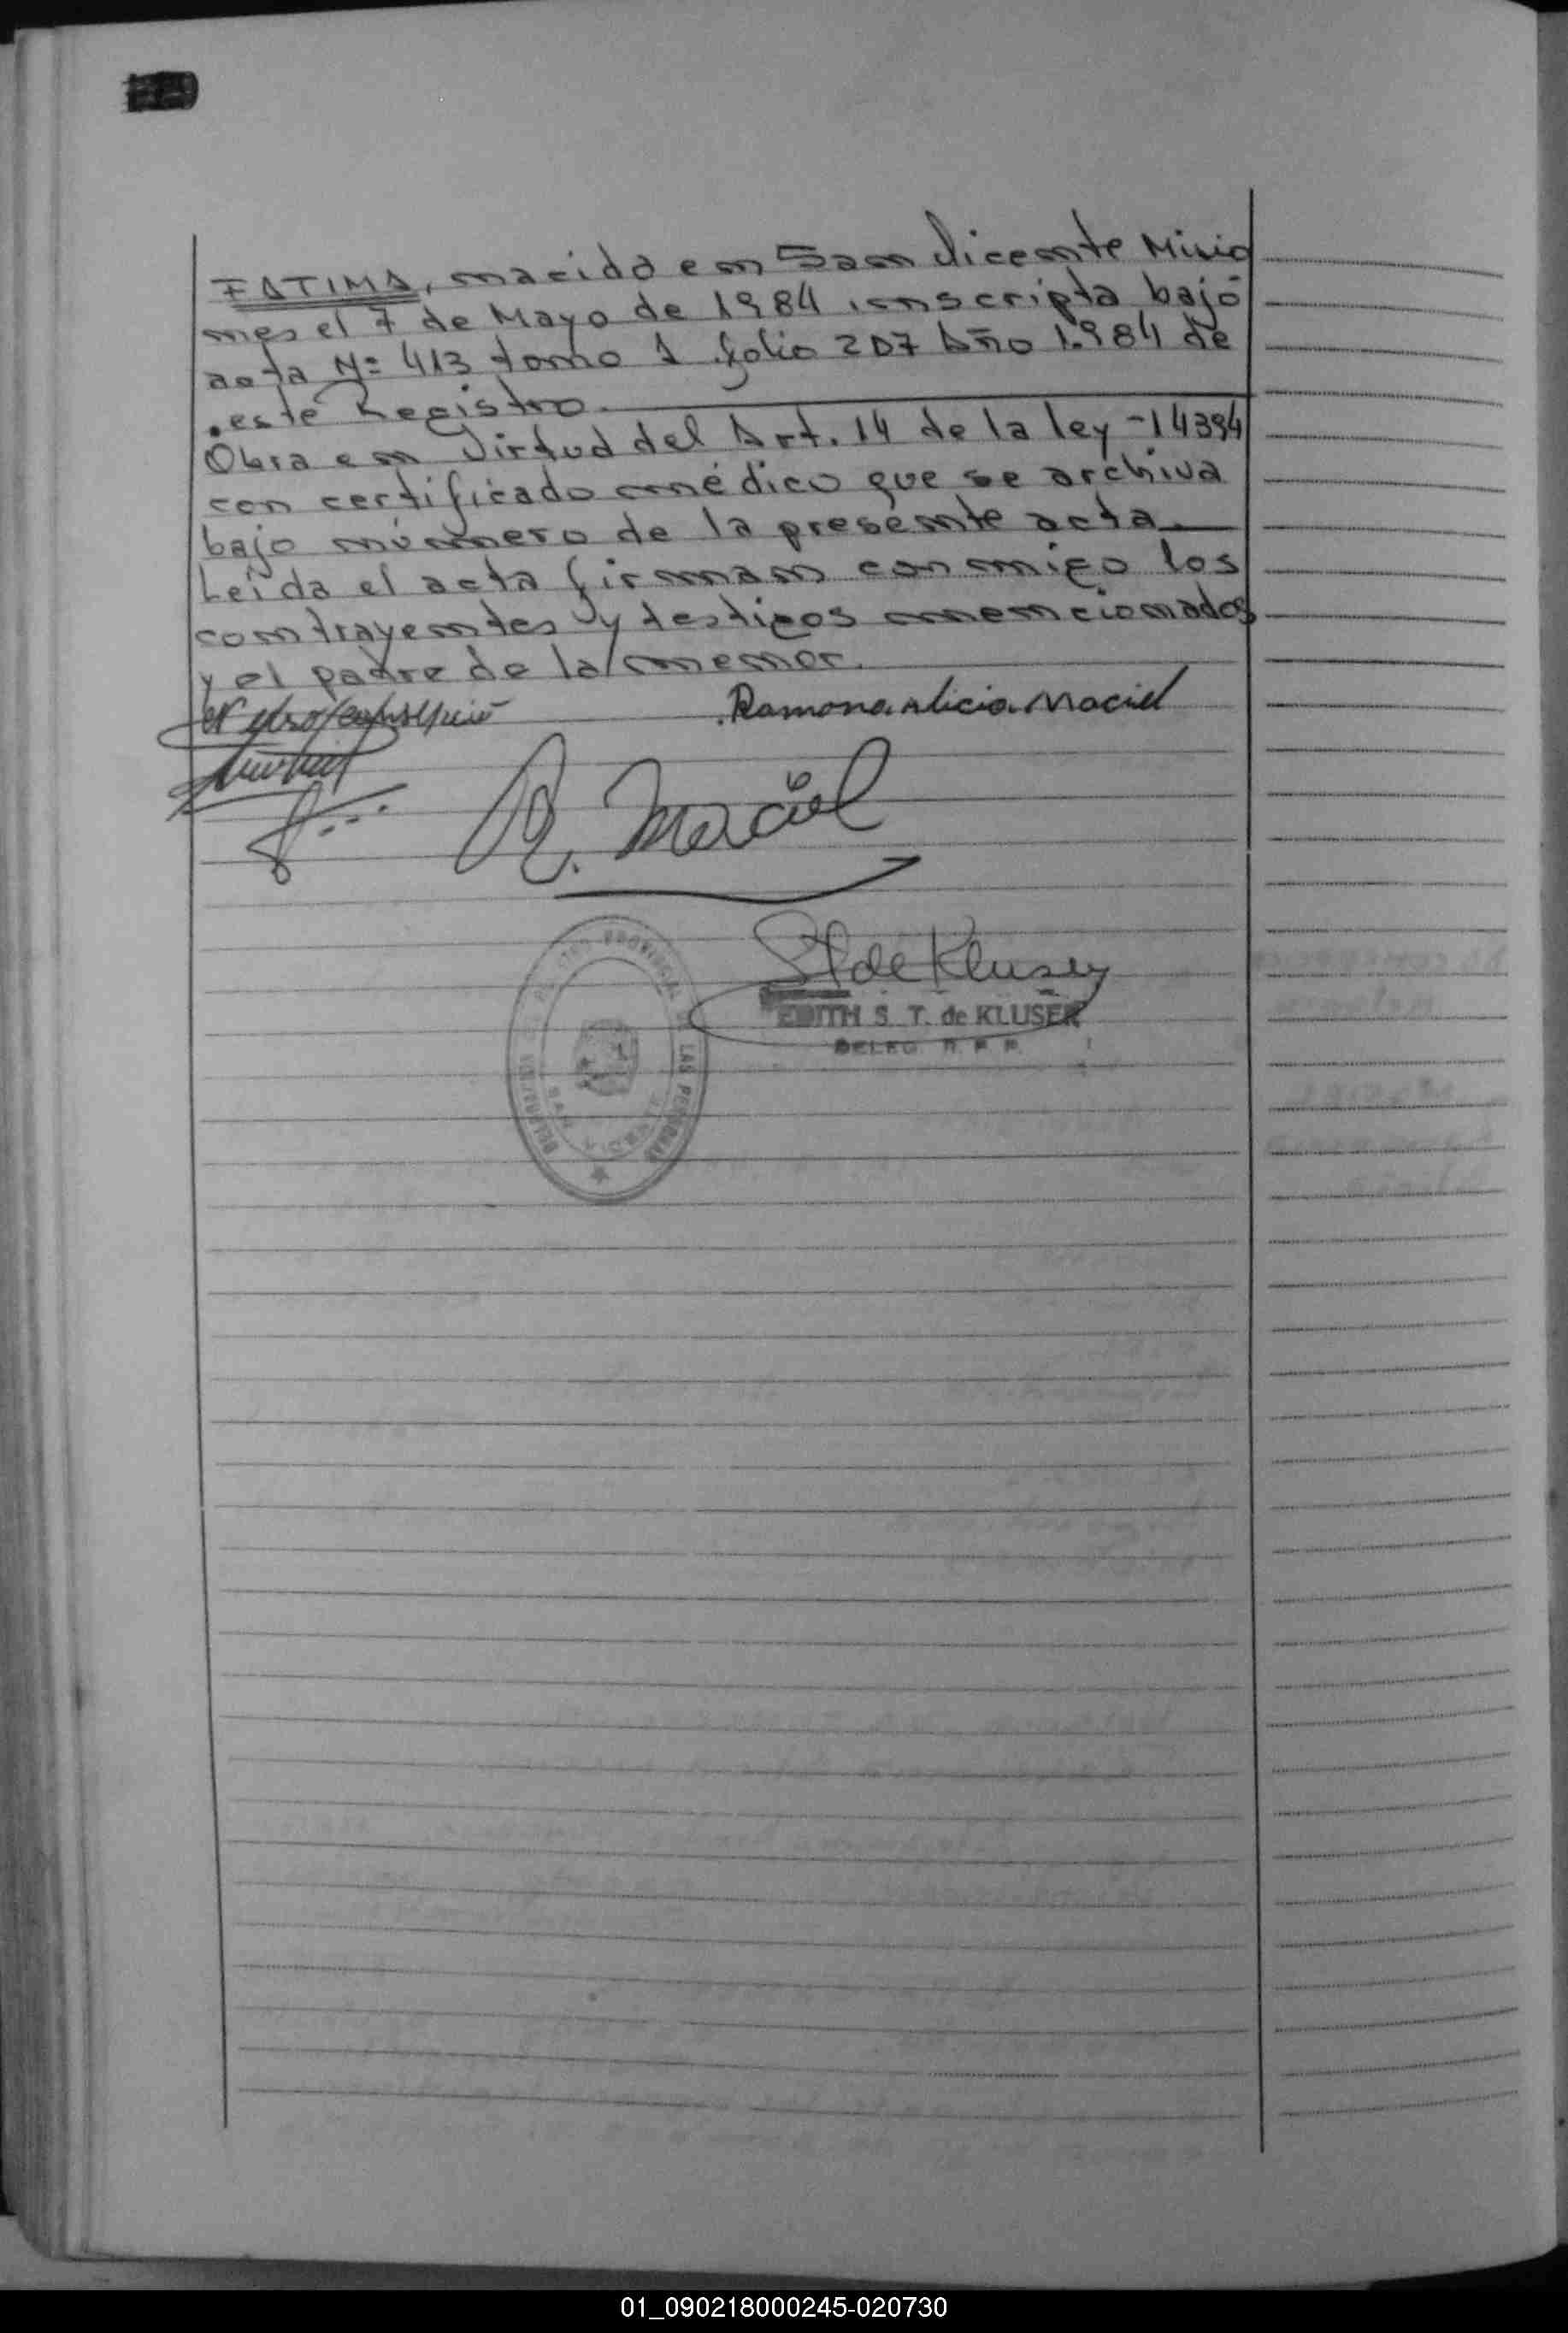 FATIMA, nacida en San Vicente Misio
nes el 7 de Mayo de 1984 inscripta bajo
acta Nº 413 tomo 1 folio 207 Año 1.984 de
este Registro.
Obra en Virtud del Art. 14 de la ley -14394
con certificado médico que se archiva
bajo número de la presente acta
Leída el acta firman conmigo los
contrayentes y testigos mencionados
y el padre de la menor.
Ramona Alicia Maciel
R. Maciel
ST de Kluser
EDITH S. T. de KLUSER
DELEG. R. P. P.
PROVINCIAL LAS PERSONAS
01_090218000245-020730